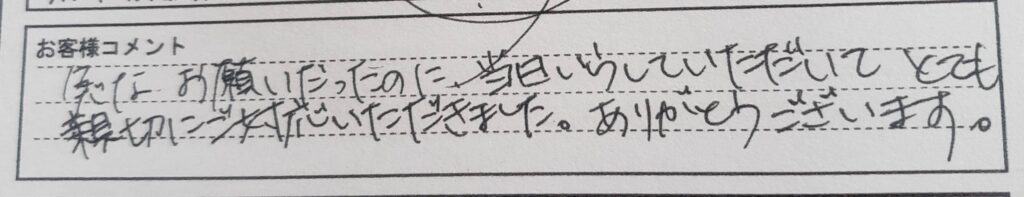 お客様コメント
急なお願いだったのに、当日いらしていただいて とても
親切にご対応いただきました。ありがとうございます。